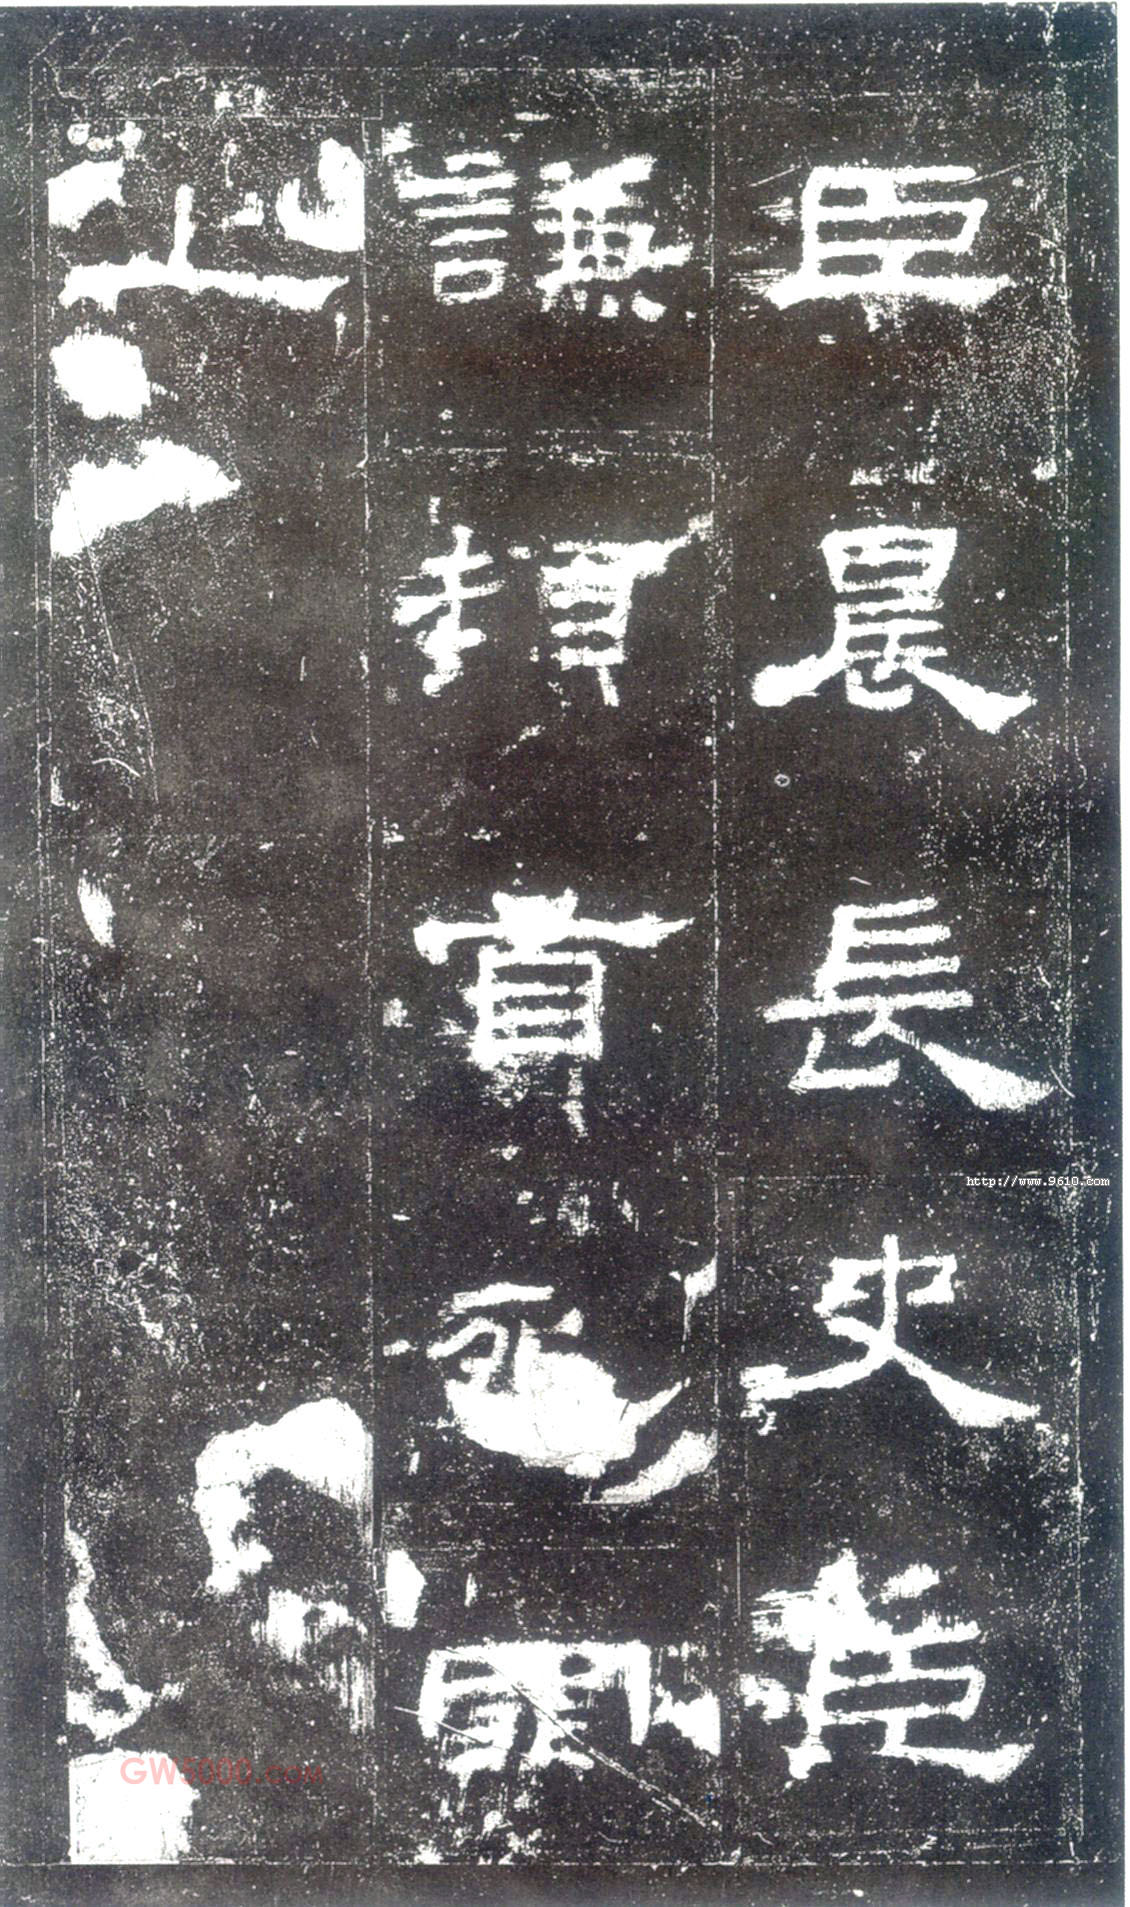 臣晨長史臣
謙頓首死罪
上
http://www.9610.com
GW5000.COM